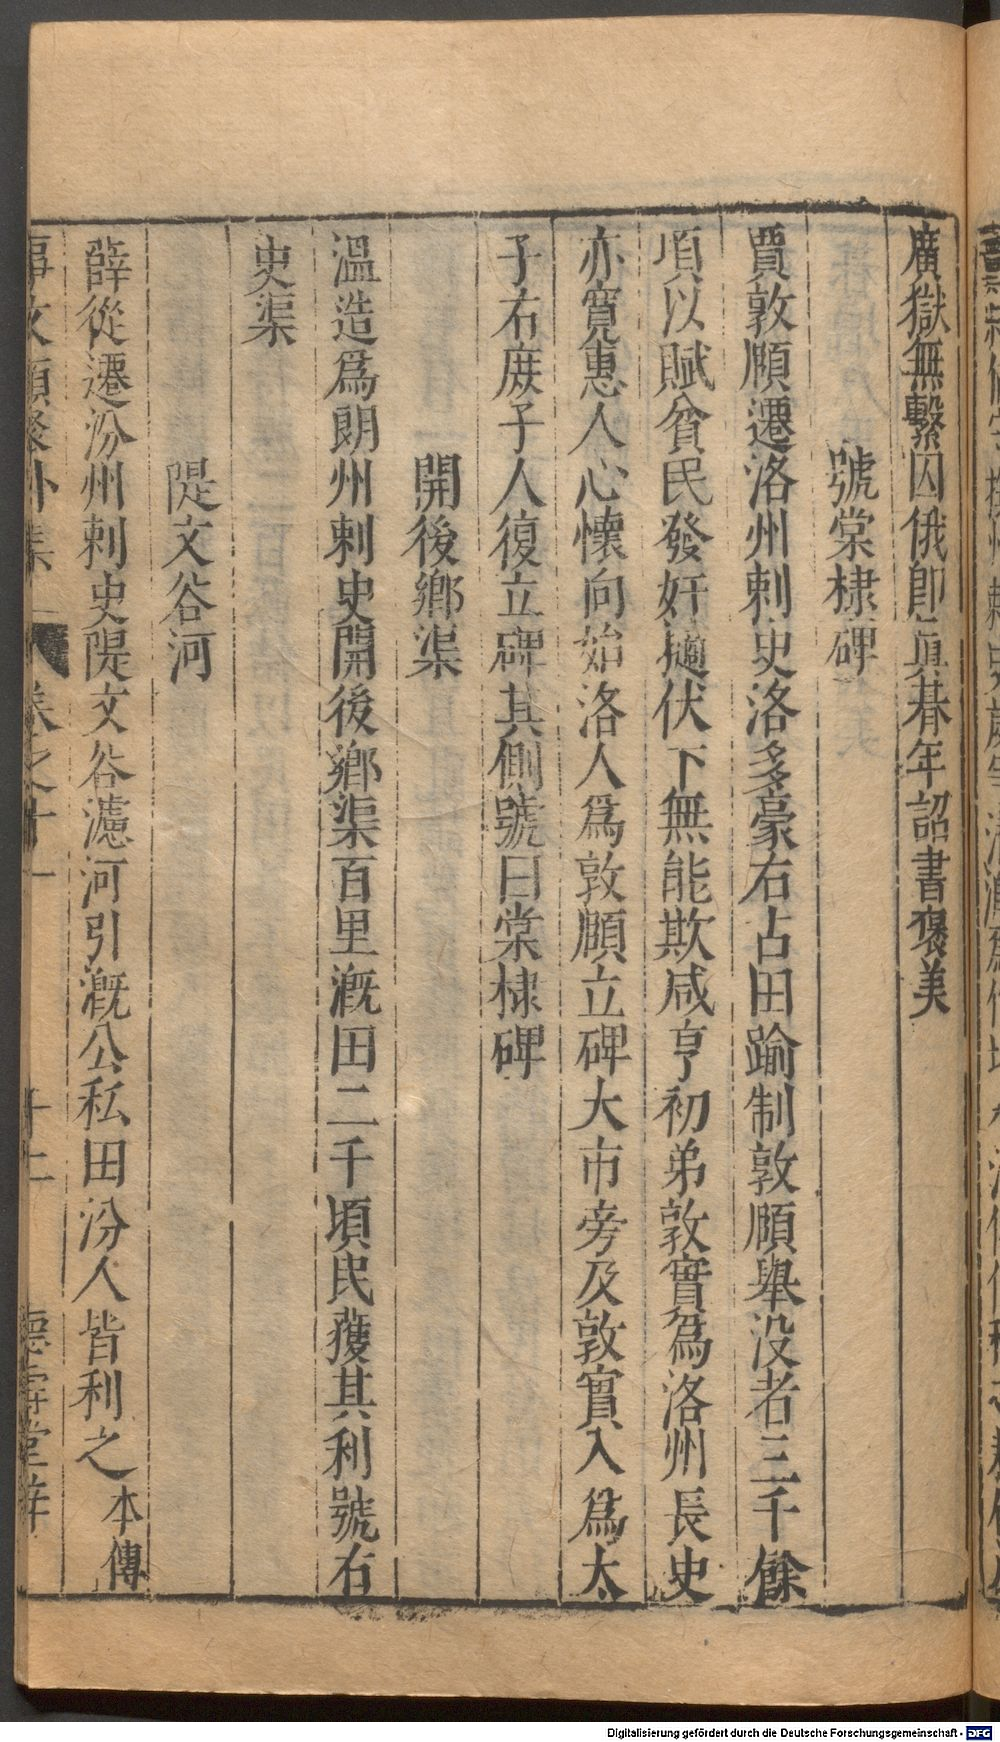 廣獄無繫囚俄即眞朞年詔書褒美
號棠棣碑
賈敦頤遷洛州刺史洛多豪右占田踰制敦頤舉没者三千餘
頃以賦貧民發奸擿伏下無能欺咸亨初弟敦實爲洛州長史
亦寛惠人心懷向始洛人爲敦頤立碑大市旁及敦實入爲太
子右庶子人復立碑其側號曰棠棣碑
開後鄉渠
溫造爲朗州刺史開後鄉渠百里漑田二千頃民獲其利號右
史渠
隄文谷河
薛從遷汾州刺史隄文谷濾河引漑公私田汾人皆利之本傳
事文類聚外集 卷之十一 十七 德壽堂梓
Digitalisierung gefördert durch die Deutsche Forschungsgemeinschaft - DFG